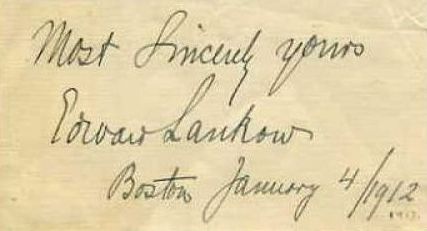 Most Sincerely yours
Edward Lankow
Boston January 4/1912
1912